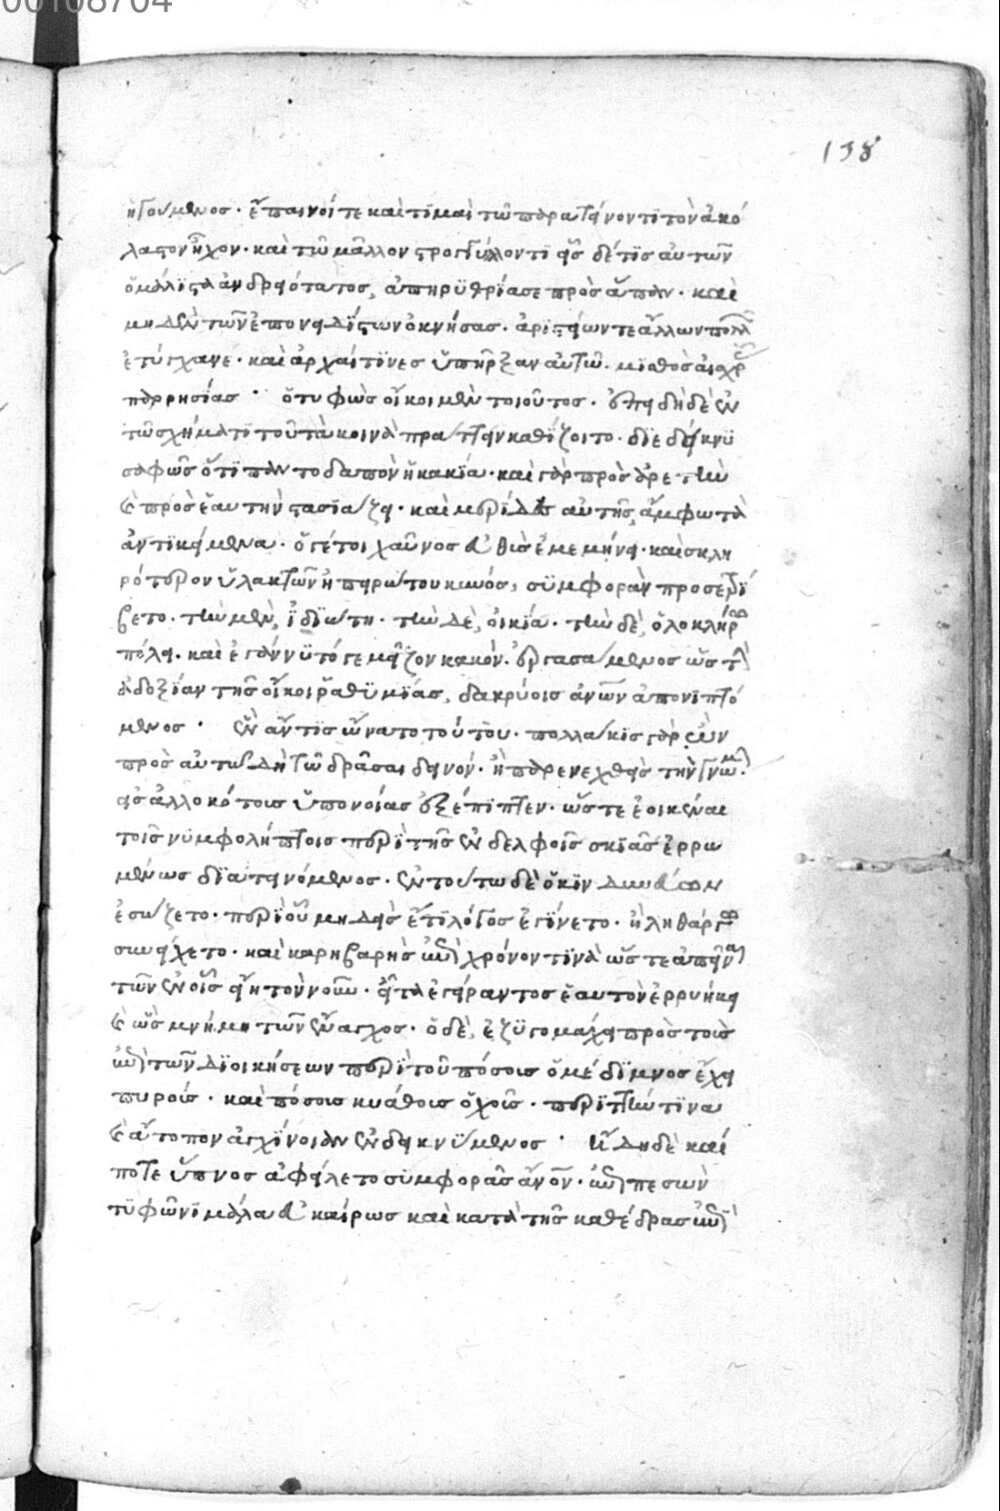 00108704
138
ἡγούμενος · ἔπαινοί τε καὶ τιμαὶ τῶ περαίνοντι τὸν ἀκό
λαστον ἦχον · καὶ τῶ μᾶλλον στρογγύλλοντι εἷς δέ τις αὐτῶν
ὁ μάλιστα ἀνδρειότατος, ἀπηρυθρίασε πρὸς ἅπαν · καὶ
μηδὲν τῶν ἐπονειδίστων ὀκνήσας · ἀριστείων τε ἄλλων πολλ
ἐτύγχανε · καὶ ἀρχαί τινες ὑπῆρξαν αὐτῶ · μισθὸς αἰσχρ
παρρησίας · ὁ τυφὼς οἴκοι μὲν τοιοῦτος · ἐπειδὴ δὲ ἐν
τῶ σχήματι τοῦ τὰ κοινὰ πράττειν καθίζοιτο · διεδείκνυ
σαφῶς ὅτι παντοδαπὸν ἡ κακία · καὶ γὰρ πρὸς ἀρετὴν
καὶ πρὸς ἑαυτὴν στασιάζει · καὶ μερίδες αὐτῆς ἄμφω τὰ
ἀντικείμενα · ὅ γέ τοι χαῦνος εὐθὺς ἐμεμήνει · καὶ σκλη
ρότερον ὑλακτῶν ἠπειρώτου κυνός, συμφορὰν προσετρί
βετο · τὴν μὲν, ἰδιώτη · τὴν δὲ, οἰκία · τὴν δὲ, ὁλοκλήρ
πόλει · καὶ ἐγάννυτό γε μεῖζον κακὸν ἐργασάμενος ὥστ
ἀδοξίαν τῆς οἴκοι ῥαθυμίας, δακρύοις ἀνων ἀπονιπτό
μενος · ἓν ἄν τις ὤνατο τούτου · πολλάκις γὰρ ὢν
πρὸς αὐτῶ δὴ τῶ δρᾶσαι δεινόν · ἢ παρενεχθεὶς τὴν γνώμ
εἰς ἀλλοκότους ὑπονοίας ἐξέπιπτεν · ὥστε ἐοικέναι
τοῖς νυμφολήπτοις περὶ τῆς ἐν δελφοῖς σκιᾶς ἐρρω
μένως διατεινόμενος · ἐν τούτω δὲ ὁ κινδυνεύων
ἐσώζετο · περὶ οὗ μηδεὶς ἔτι λόγος ἐγίνετο · ἢ ληθάργ
συνείχετο · καὶ καρηβαρὴς ἐπὶ χρόνον τινὰ ὥστε ἀπεῖναι
τῶν ἐν οἷς εἴη τὸν νοῦν · εἶτα ἐγείραντος ἑαυτὸν ἐρρυήκει
καὶ ὡς μνήμη τῶν ἔναγχος · ὁ δὲ, ἐζυγομάχει πρὸς τοὺς
ἐπὶ τῶν διοικήσεων περὶ τοῦ πόσους ὁ μέδιμνος ἔχει
πυρούς · καὶ πόσους κυάθους ὁ χοῦς · περὶ πτύην τινα
καὶ ἄτοπον ἀγχίνοιαν ἐνδεικνύμενος · ἤδη δὲ καί
ποτε ὕπνος ἀφείλετο συμφορᾶς ἀνον · ἐπιπεσὼν
τυφῶνι μάλα εὐκαίρως καὶ κατὰ τῆς καθέδρας ἐπὶ